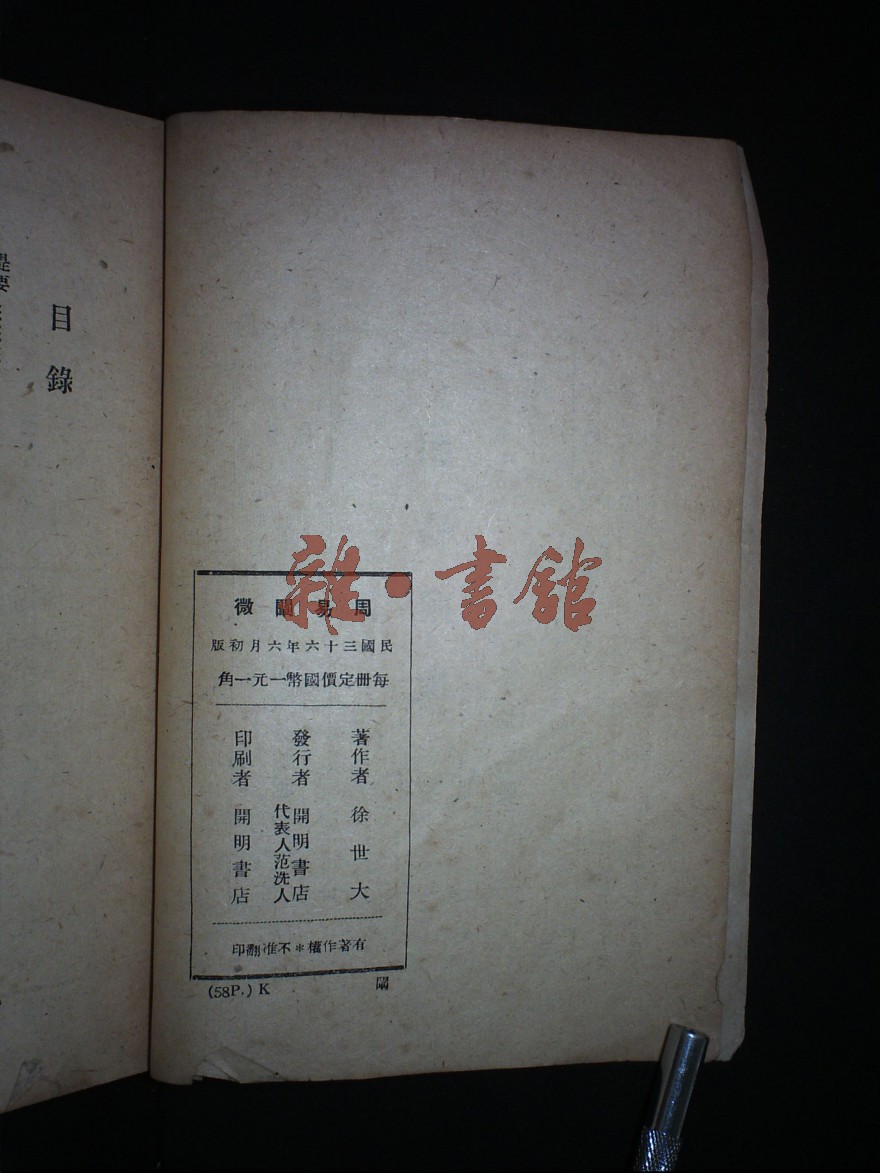 周易闡微
民國三十六年六月初版
每冊定價國幣一元一角
著作者 徐世大
發行者 開明書店
代表人范洗人
印刷者 開明書店
有著作權＊不准翻印
(58P.) K
闡
目錄
提要
雜·書館